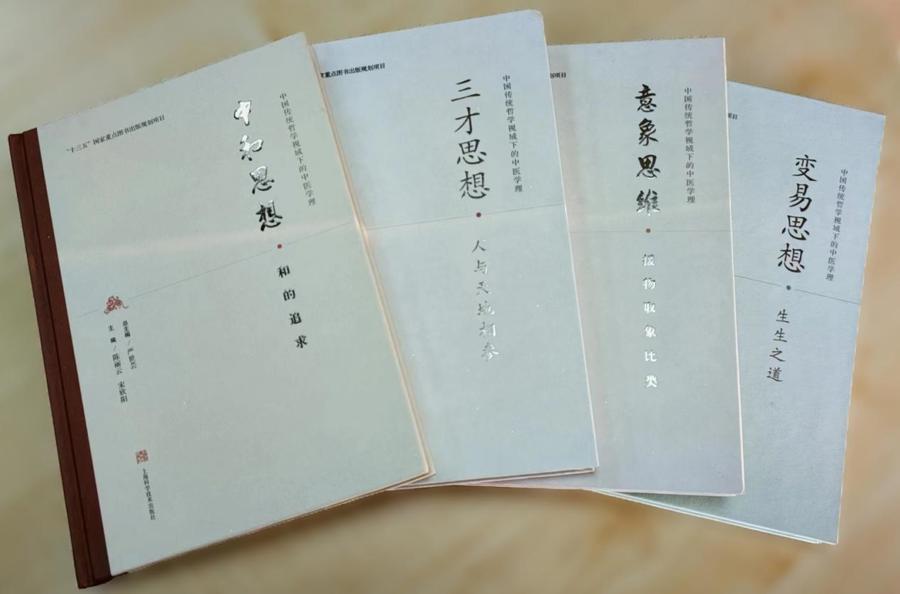 "十三五"国家重点图书出版规划项目
中国传统哲学视域下的中医学理
中和思想
和的追求
总主编／严世芸
主编／陈丽云 宋欣阳
上海科学技术出版社
家重点图书出版规划项目
中国传统哲学视域下的中医学理
三才思想
人与天地相参
版规划项目
中国传统哲学视域下的中医学理
意象思维
援物取象比类
项目
中国传统哲学视域下的中医学理
变易思想
生生之道